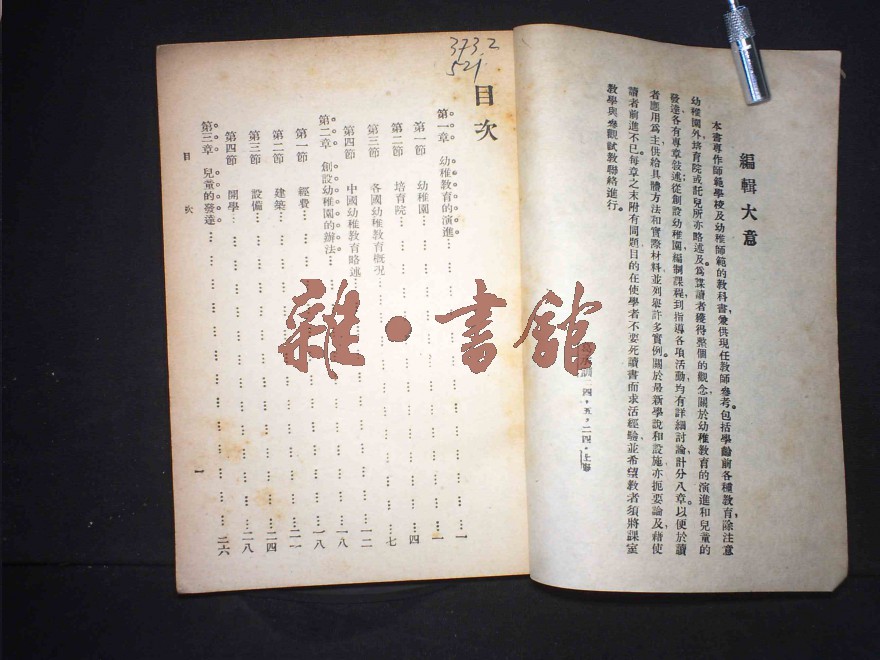 編輯大意
本書專作師範學校及幼稚師範的教科書,兼供現任教師參考。包括學齡前各種教育,除注意
幼稚園外,培育院或託兒所亦略述及。爲謀讀者獲得整個的觀念,關於幼稚教育的演進和兒童的
發達,各有專章敍述;從創設幼稚園,編制課程,到指導各項活動,均有詳細討論,計分八章。以便於讀
者應用爲主,供給具體方法和實際材料,並列舉許多實例。關於最新學說和設施,亦扼要論及,藉使
讀者前進不已。每章之末,附有問題,目的在使學者不要死讀書而求活經驗,並希望教者須將課室
教學與參觀試教聯絡進行。
四,五,二四,上海
373.2
521
目次
第一章 幼稚教育的演進……一
第一節 幼稚園……
第二節 培育院……四
第三節 各國幼稚教育概況……七
第四節 中國幼稚教育略述……一二
第二章 創設幼稚園的辦法……一八
第一節 經費……一八
第二節 建築……二一
第三節 設備……二四
第四節 開學……二八
第三章 兒童的發達……二六
目次
一
雜·書館